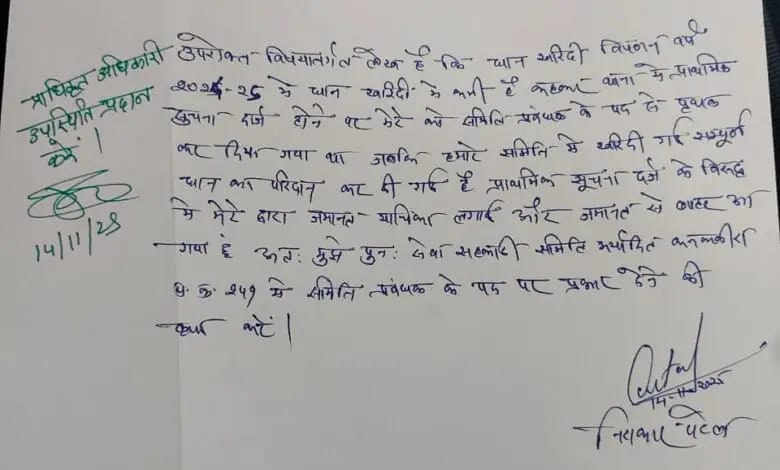 प्राधिकृत अधिकारी
उपस्थिति प्रदान
करें।
14/11/25
उपरोक्त विषयान्तर्गत लेख है कि धान खरिदी विपणन वर्ष
2024-25 में धान खरिदी में कमी है कहकर थाना में प्राथमिक
सुचना दर्ज होने पर मेरे को समिति प्रबंधक के पद से पृथक
कर दिया गया था जबकि हमारे समिति में खरिदी गई सम्पूर्ण
धान का परिदान कर दी गई है प्राथमिक सूचना दर्ज के विरूद्ध
में मेरे द्वारा जमानत याचिका लगाई और जमानत से बाहर आ
गया हूं अतः मुझे पुनः सेवा सहकारी समिति मर्यादित
में समिति प्रबंधक के पद पर प्रभार देने की
कृपा करें।
14-11-2025
पटेल